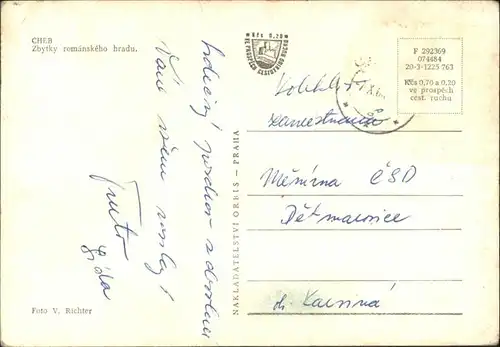 CHEB
Zbytky románského hradu.
Kčs 0,20
VE PROSPĚCH CESTOVNÍHO RUCHU
F 292369
074484
20-3-1225 763
Kčs 0,70 a 0,20
ve prospěch
cest. ruchu
Srdečný pozdrav z dovolené
Vám všem
Lída
NAKLADATELSTVÍ ORBIS - PRAHA
Kolektiv
zaměstnanců
Měnírna ČSD
Dětmarovice
Karviná
Foto V. Richter